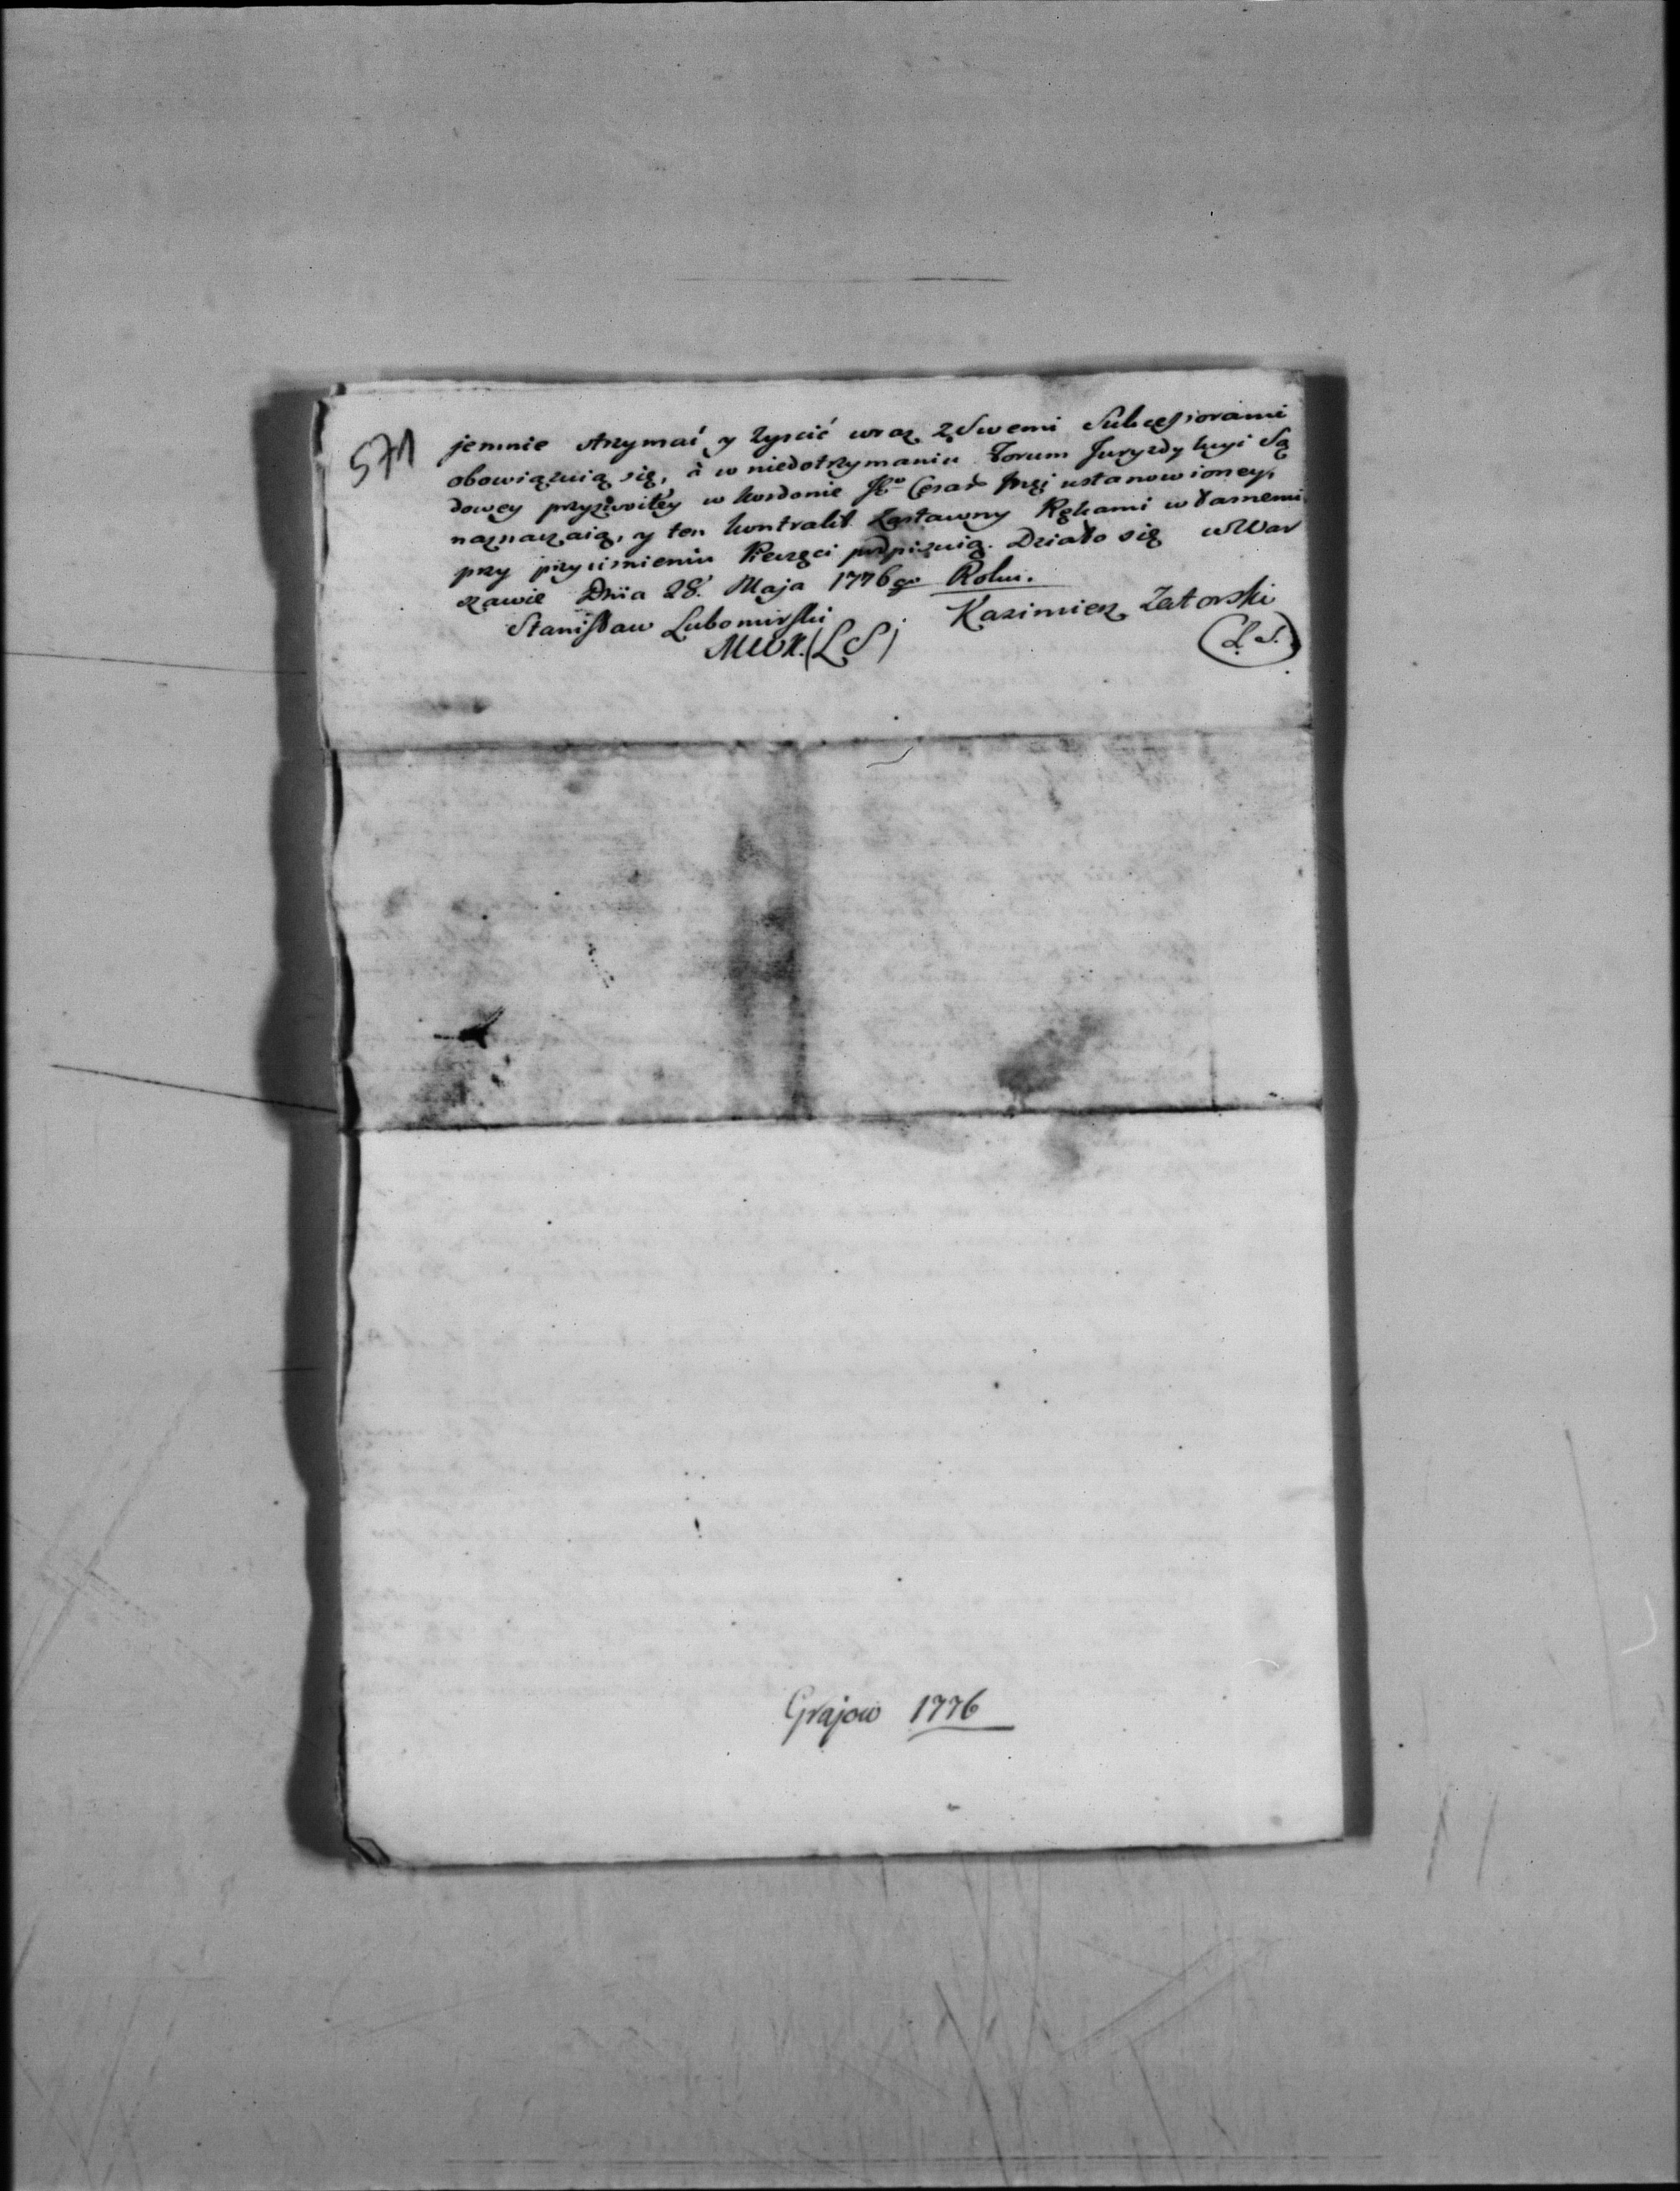 571
jemnie strzymać y zyscić wraz z Swemi Sukcessorami
obowiązuią się, à w niedotrzymaniu Forum Juryzdykcyi Są
dowey przyzwoitey w kordonie Cesar ustanowioney,
naznaczaią, y ten kontrakt Zastawny Rękami własnemi
przy przyciśnieniu Pieczęci podpisuią. Działo się w War
szawie Dnia 28. Maja 1776go Roku.
Stanisław Lubomirski Kazimierz Zatorski
MWK. (LS) (L.S.)
Grajow 1776